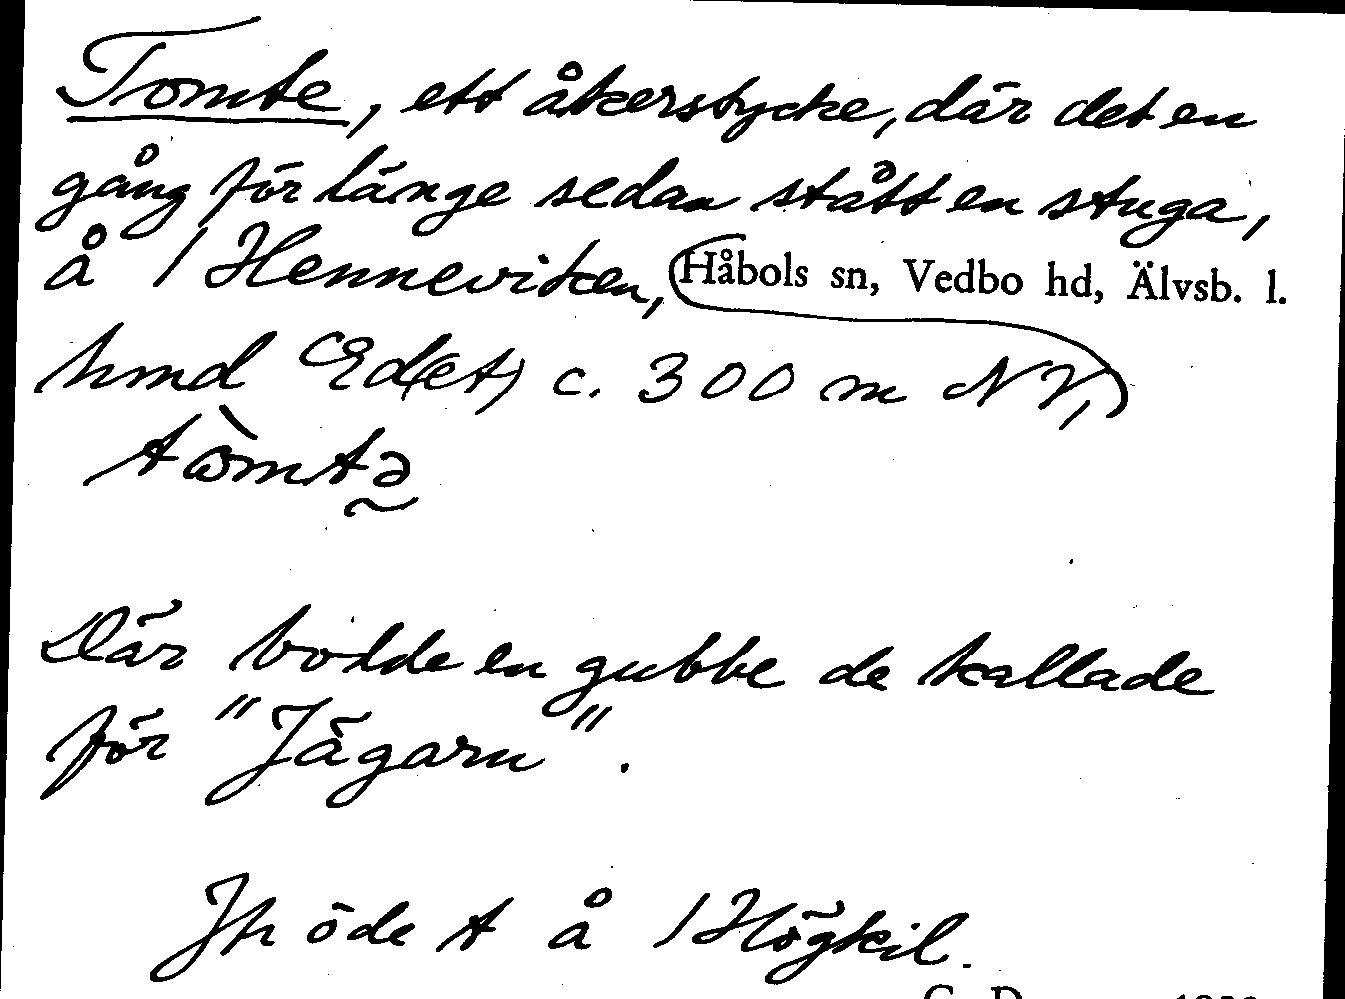 Tomte, ett åkerstycke, där det en
gång för länge sedan stått en stuga,
å 1 Henneviken, Håbols sn, Vedbo hd, Älvsb. l.
hmd Ed(et) c. 300 m NV,
tòmtə
Där bodde en gubbe de kallade
för "Jägarn".
Jfr ödet å 1 Högkil.